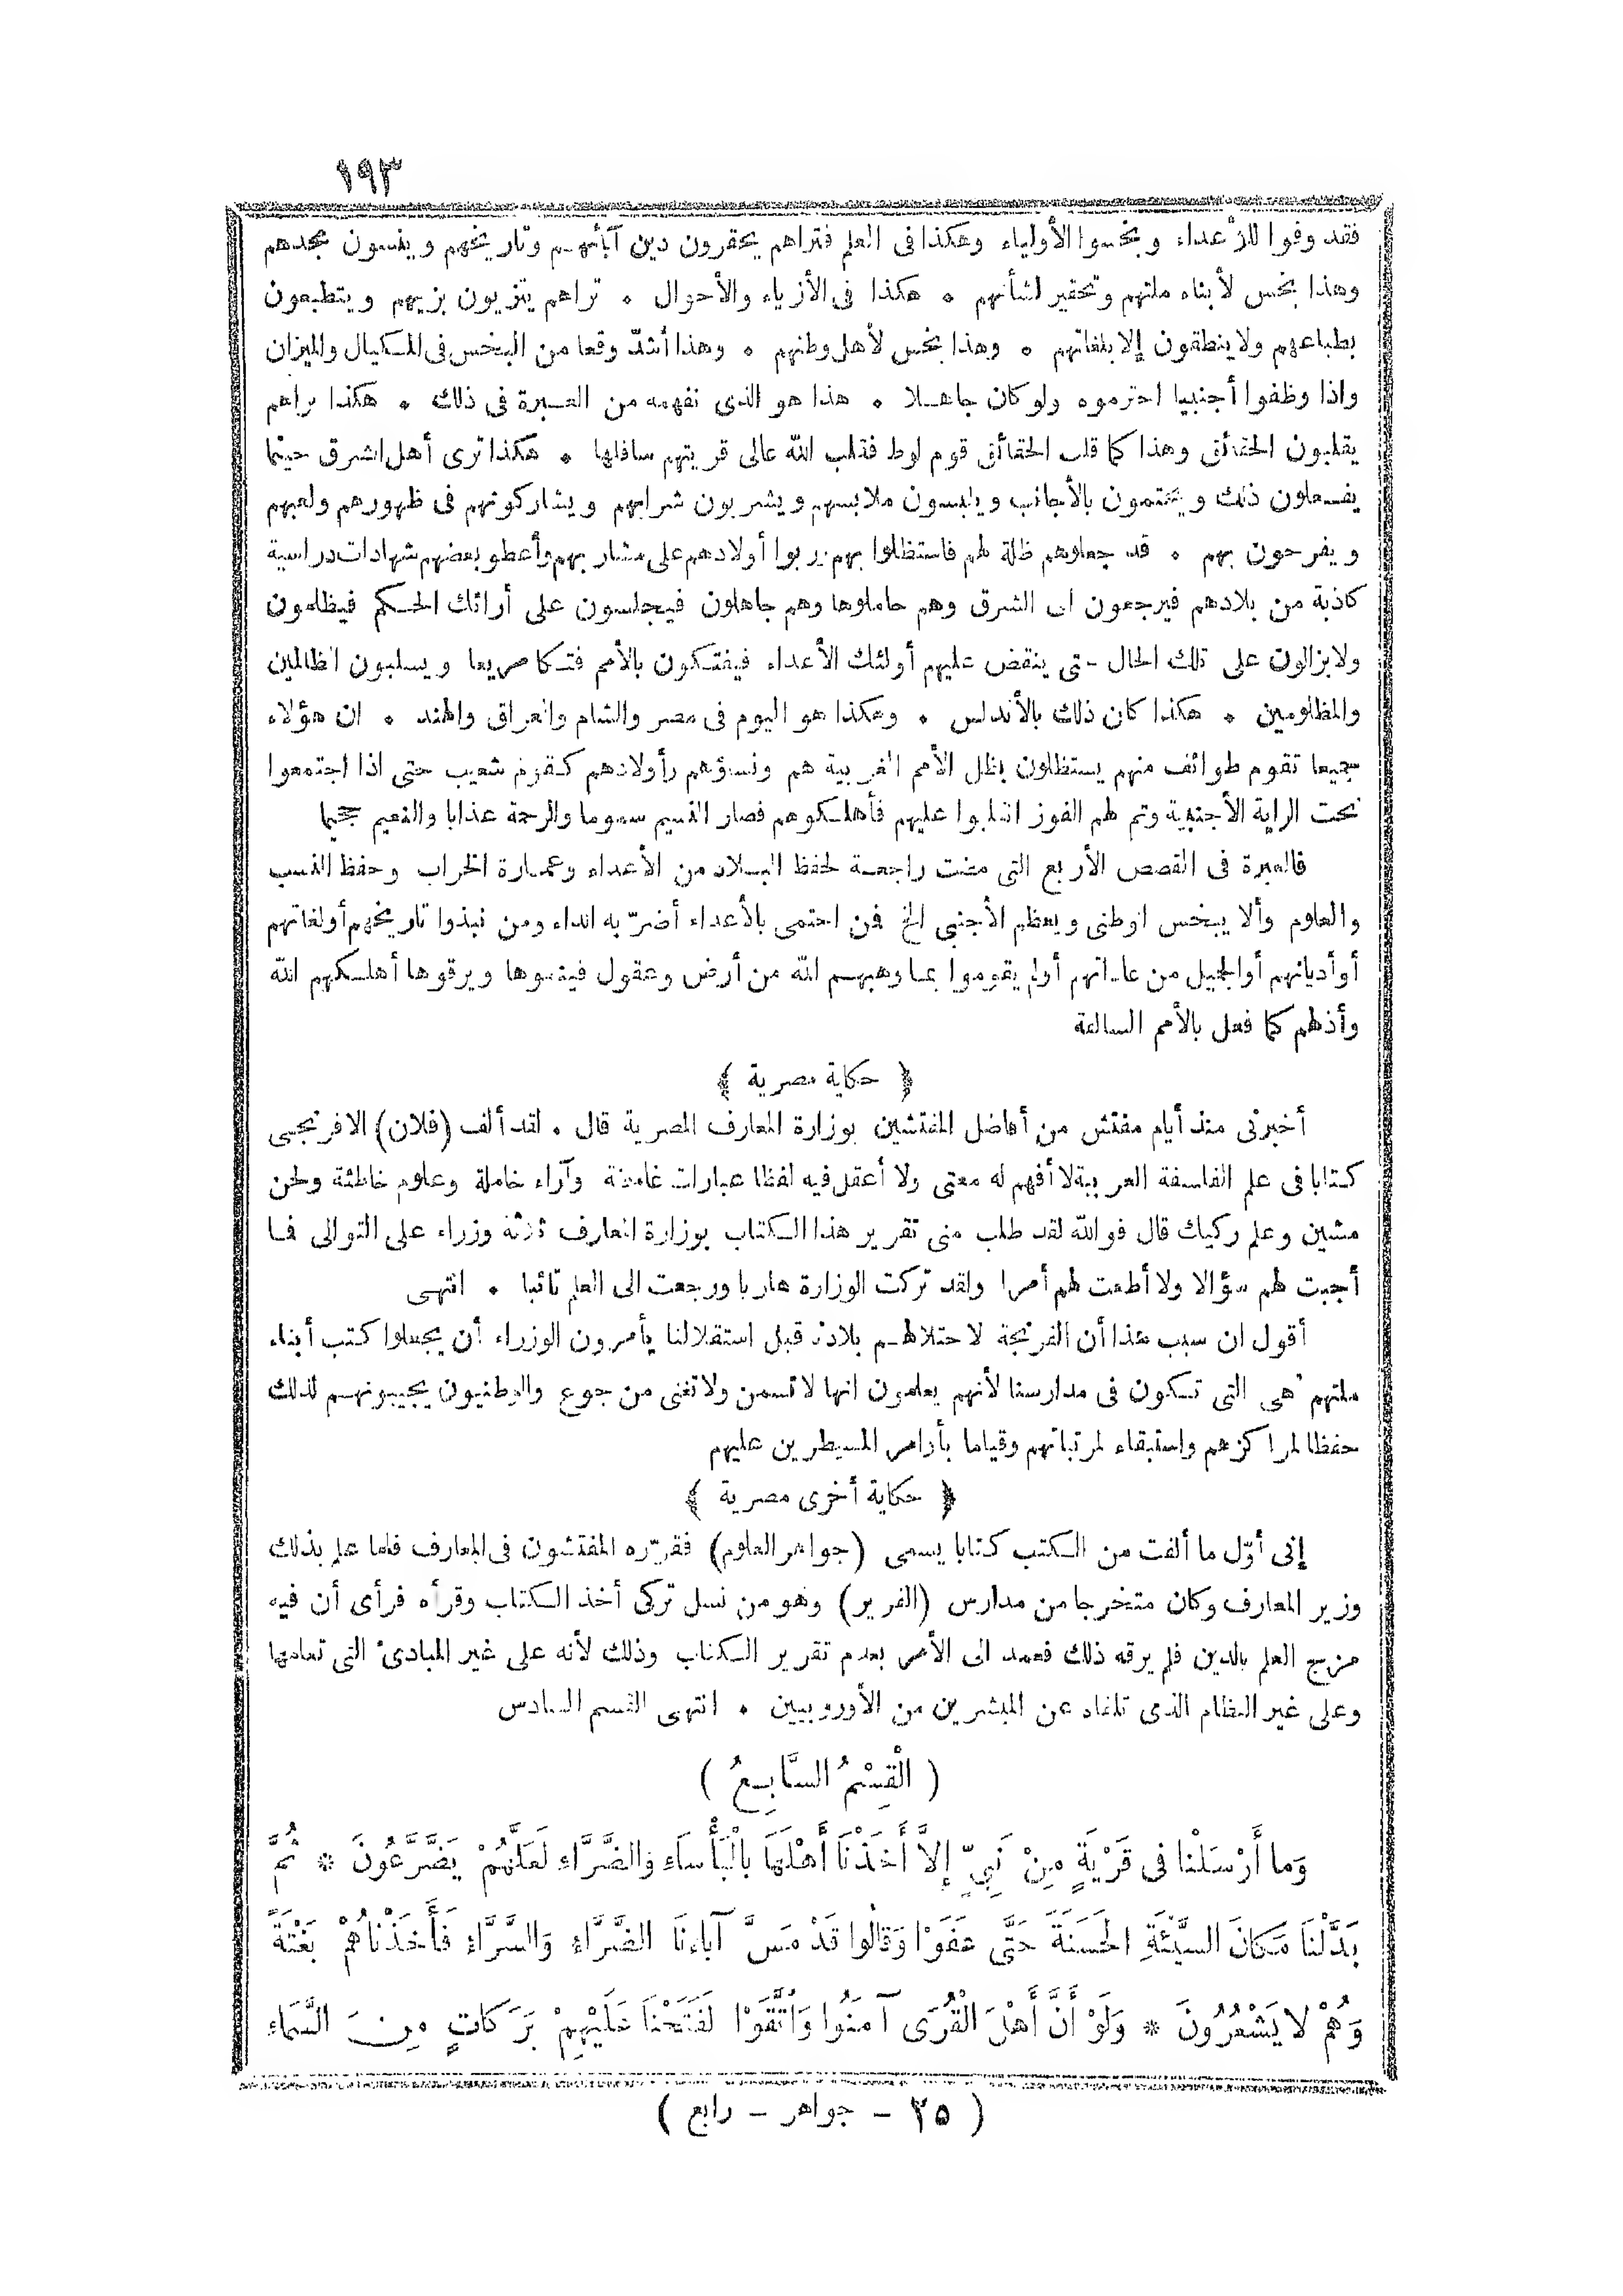 ١٩٣
فقد وفوا للأعداء وبخسوا الأولياء وهكذا فى العلم فتراهم يحقرون دين آبائهم وتاريخهم وينسون مجدهم
وهذا بخس لأبناء ملتهم وتحقير لشأنهم • هكذا فى الأزياء والأحوال • تراهم يتزيون بزيهم ويتطبعون
بطباعهم ولا ينطقون إلا بلغاتهم • وهذا بخس لأهل وطنهم • وهذا أشدّ وقعا من البخس فى المكيال والميزان
واذا وظفوا أجنبيا احترموه ولو كان جاهلا • هذا هو الذى نفهمه من العبرة فى ذلك • هكذا تراهم
يقلبون الحقائق وهذا كما قلب الحقائق قوم لوط فقلب الله عالى قريتهم سافلها • هكذا ترى أهل الشرق حينما
يفعلون ذلك ويحتمون بالأجانب ويلبسون ملابسهم ويشربون شرابهم ويشاركونهم فى ظهورهم ولعبهم
ويفرحون بهم • قد جعلوهم ظلة لهم فاستظلوا بهم وربوا أولادهم على مشاربهم وأعطوا بعضهم شهادات دراسية
كاذبة من بلادهم فيرجعون الى الشرق وهم حاملوها وهم جاهلون فيجلسون على أرائك الحكم فيظلمون
ولا يزالون على تلك الحال حتى ينقض عليهم أولئك الأعداء فيفتكون بالأمم فتكا صريعا ويسلبون الظالمين
والمظلومين • هكذا كان ذلك بالأندلس • وهكذا هو اليوم فى مصر والشام والعراق والهند • ان هؤلاء
جميعا تقوم طوائف منهم يستظلون بظل الأمم الغربية هم ونساؤهم وأولادهم كقوم شعيب حتى اذا اجتمعوا
تحت الراية الأجنبية وتم لهم الفوز انقلبوا عليهم فأهلكوهم فصار النسيم سموما والرحمة عذابا والنعيم جحيما
فالعبرة فى القصص الأربع التى مضت راجعة لحفظ البلاد من الأعداء وعمارة الخراب وحفظ النسب
والعلوم وألا يبخس الوطنى ويعظم الأجنبى الخ فمن احتمى بالأعداء أضرّ به الداء ومن نبذوا تاريخهم أو لغاتهم
أو أديانهم أو الجميل من عاداتهم أو لم يقوموا بما وهبهم الله من أرض وعقول فينموها ويرقوها أهلكهم الله
وأذلهم كما فعل بالأمم السالفة
﴿ حكاية مصرية ﴾
أخبرنى منذ أيام مفتش من أفاضل المفتشين بوزارة المعارف المصرية قال • لقد ألف (فلان) الافرنجى
كتابا فى علم الفلسفة العربية لا أفهم له معنى ولا أعقل فيه لفظا عبارات غامضة وآراء خاملة وعلوم خاطئة ولحن
مشين وعلم ركيك قال فوالله لقد طلب منى تقرير هذا الكتاب بوزارة المعارف ثلاثة وزراء على التوالى فما
أجبت لهم سؤالا ولا أطعت لهم أمرا ولقد تركت الوزارة هاربا ورجعت الى العلم تائبا • انتهى
أقول ان سبب هذا أن الفرنجة لاحتلالهم بلادنا قبل استقلالنا يأمرون الوزراء أن يجعلوا كتب أبناء
ملتهم هى التى تكون فى مدارسنا لأنهم يعلمون انها لا تسمن ولا تغنى من جوع والوطنيون يجيبونهم لذلك
حفظا لمراكزهم واستبقاء لمرتباتهم وقياما بأوامر المسيطرين عليهم
﴿ حكاية أخرى مصرية ﴾
إنى أوّل ما ألفت من الكتب كتابا يسمى (جواهر العلوم) فقرّره المفتشون فى المعارف فلما علم بذلك
وزير المعارف وكان متخرجا من مدارس (الفرير) وهو من نسل تركى أخذ الكتاب وقرأه فرأى أن فيه
مزج العلم بالدين فلم يرقه ذلك فعمد الى الأمر بعدم تقرير الكتاب وذلك لأنه على غير المبادئ التى تعلمها
وعلى غير النظام الذى تلقاه عن المبشرين من الأوروبيين • انتهى القسم السادس
( الْقِسْمُ السَّابِعُ )
وَما أَرْسَلْنا فى قَرْيَةٍ مِنْ نَبِيٍّ إِلاَّ أَخَذْنَا أَهْلَهَا بِالْبَأْسَاءِ وَالضَّرَّاءِ لَعَلَّهُمْ يَضَّرَّعُونَ * ثُمَّ
بَدَّلْنَا مَكانَ السَّيِّئَةِ الحَسَنَةَ حَتَّى عَفَوْا وَقَالُوا قَدْ مَسَّ آبَاءَنَا الضَّرَّاءُ وَالسَّرَّاءُ فَأَخَذْنَاهُمْ بَغْتَةً
وَهُمْ لا يَشْعُرُونَ * وَلَوْ أَنَّ أَهْلَ الْقُرَى آمَنُوا وَاتَّقَوْا لَفَتَحْنَا عَلَيْهِمْ بَرَكاتٍ مِنَ السَّمَاءِ
( ٢٥ - جواهر - رابع )